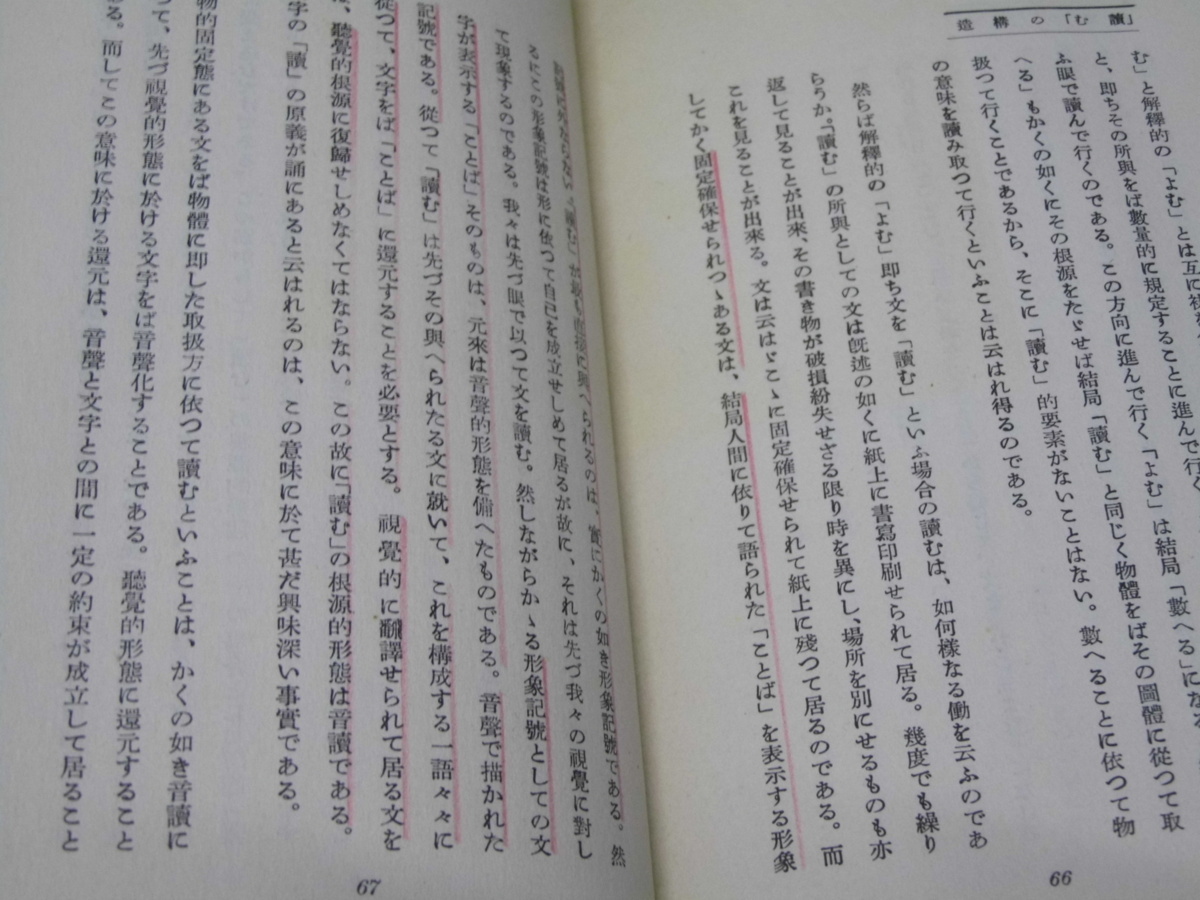 造構の「む讀」
む」と解釋的の「よむ」とは互に
と、即ちその所與をば數量的に規定することに進んで行く
ふ眼で讀んで行くのである。この方向に進んで行く「よむ」は結局「數へる」になる
へる」もかくの如くにその根源をたゞせば結局「讀む」と同じく物體をばその圖體に從つて取
扱つて行くことであるから、そこに「讀む」的要素がないことはない。數へることに依つて物
の意味を讀み取つて行くといふことは云はれ得るのである。
然らば解釋的の「よむ」即ち文を「讀む」といふ場合の讀むは、如何樣なる働を云ふのであ
らうか。「讀む」の所與としての文は旣述の如くに紙上に書寫印刷せられて居る。幾度でも繰り
返して見ることが出來、その書き物が破損紛失せざる限り時を異にし、場所を別にせるものも亦
これを見ることが出來る。文は云はゞこゝに固定確保せられて紙上に殘つて居るのである。而
してかく固定確保せられつゝある文は、結局人間に依りて語られた「ことば」を表示する形象
66
記號に外ならない。「讀む」が最も直接に與へられるのは、實にかくの如き形象記號である。然
るにこの形象記號は形に依つて自己を成立せしめて居るが故に、それは先づ我々の視覺に對し
て現象するのである。我々は先づ眼で以つて文を讀む。然しながらかゝる形象記號としての文
字が表示する「ことば」そのものは、元來は音聲的形態を備へたものである。音聲で描かれた
記號である。從つて「讀む」は先づその與へられたる文に就いて、これを構成する一語々々に
從つて、文字をば「ことば」に還元することを必要とする。視覺的に飜譯せられて居る文を
ば、聽覺的根源に復歸せしめなくてはならない。この故に「讀む」の根源的形態は音讀である。
字の「讀」の原義が誦にあると云はれるのは、この意味に於て甚だ興味深い事實である。
物的固定態にある文をば物體に即した取扱方に依つて讀むといふことは、かくの如き音讀に
つて、先づ視覺的形態に於ける文字をば音聲化することである。聽覺的形態に還元すること
ある。而してこの意味に於ける還元は、音聲と文字との間に一定の約束が成立して居ること
67